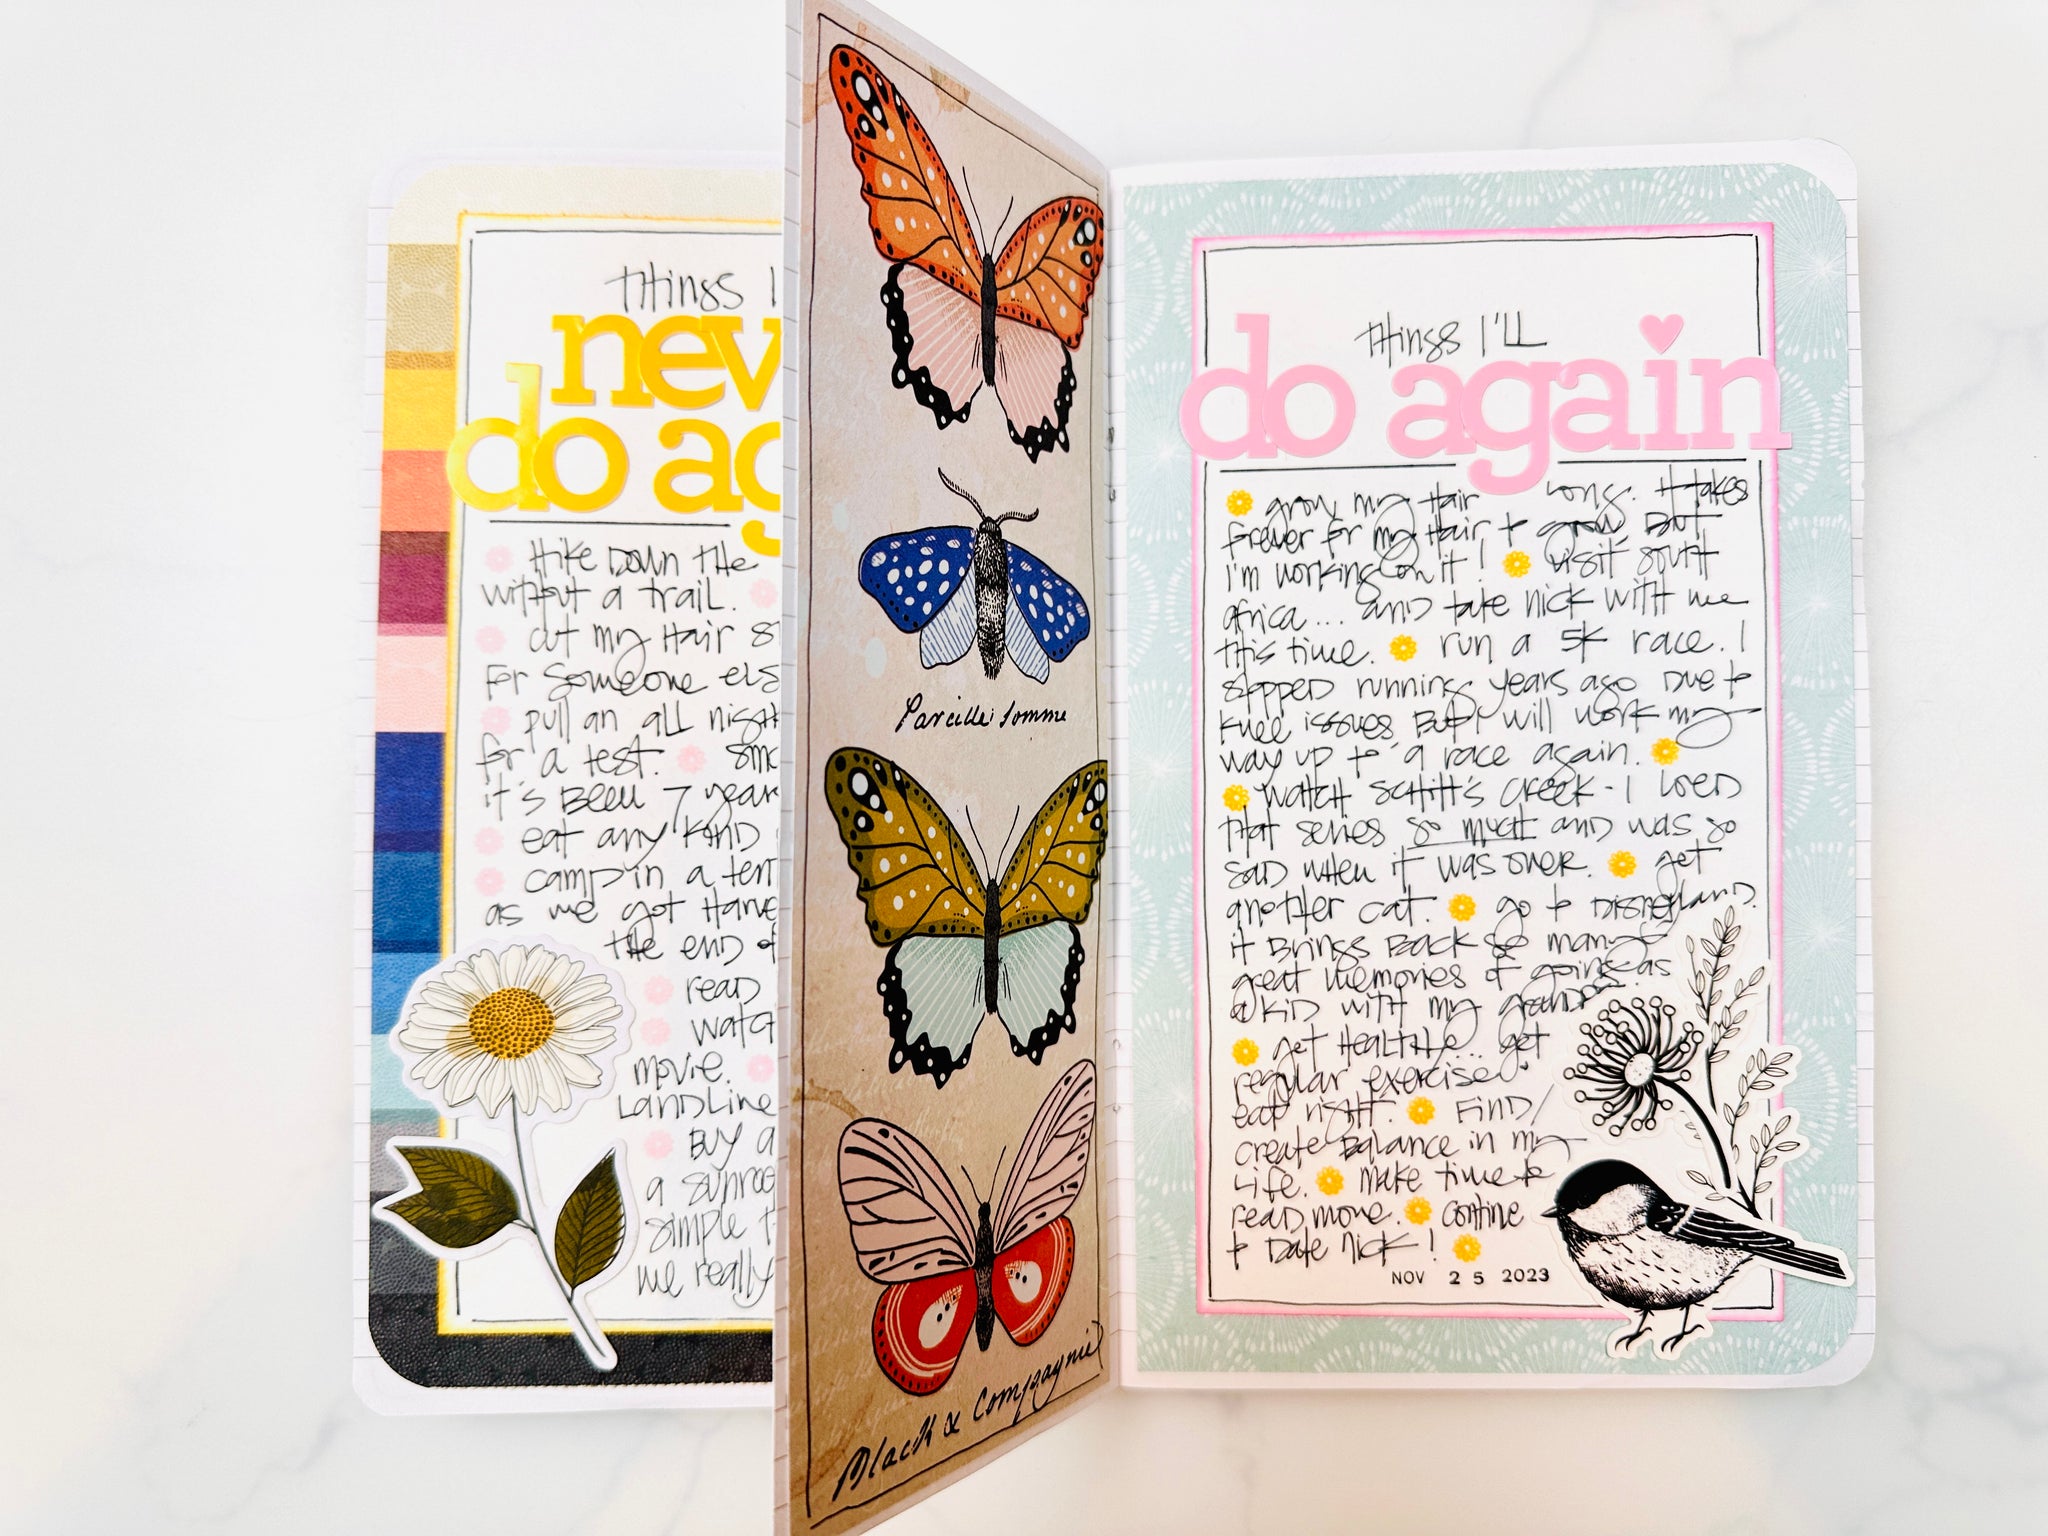 Things I
nev
do ag
Hike down the
without a trail.
cut my hair s
for someone els
pull an all nigh
for a test. smo
it's been 7 year
eat any kind
camp in a ten
as we got Harve
the end of
read
watc
movie.
Landline
Buy a
a sunroo
simple t
me really
Pareille Somme
Black & Compagnie
Things I'll
do again
grow my hair long. It takes
forever for my hair to grow but
I'm working on it! visit South
Africa... and take Nick with me
this time. run a 5K race. I
stopped running years ago due to
knee issues but I will work my
way up to a race again.
watch Schitt's Creek - I loved
that series so much and was so
sad when it was over. get
another cat. go to Disneyland.
it brings back so many
great memories of going as
a kid with my grandpa.
get healthy... get
regular exercise.
eat right. Find/
create balance in my
life. make time to
read more. continue
to date Nick!
NOV 25 2023